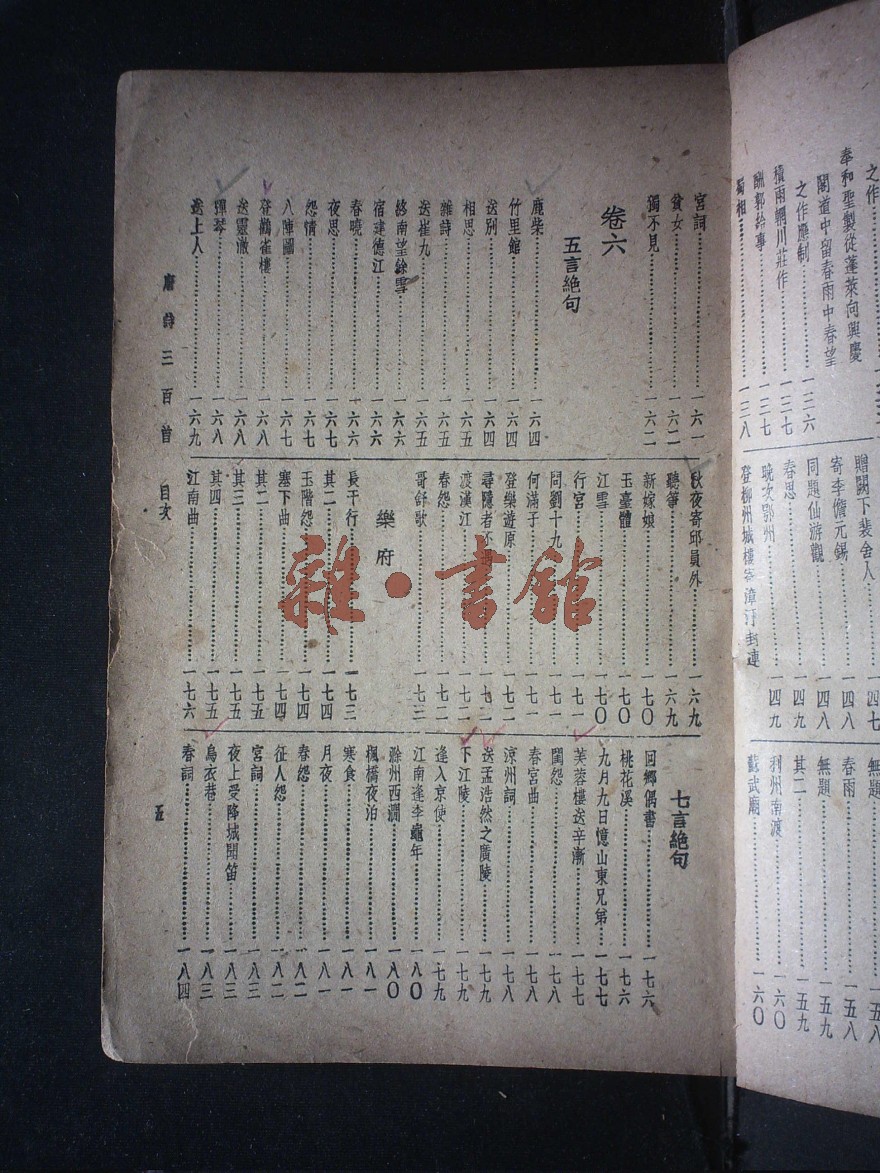 之作
奉和聖製從蓬萊向興慶
閣道中留春雨中春望
之作應制……一三六
積雨輞川莊作……一三七
酬郭給事……一三七
……一三八
贈闕下裴舍人……一四七
寄李儋元錫……一四八
同題仙游觀……一四八
春思……一四九
晚次鄂州……一四九
登柳州城樓寄漳汀封連
無題……一五八
春雨……一五八
無題……一五九
其二……一五九
利州南渡……一六〇
蘇武廟……一六〇
宮詞……一六一
貧女……一六二
獨不見……一六二
卷六
五言絕句
鹿柴……一六四
竹里館……一六四
送別……一六四
相思……一六五
雜詩……一六五
送崔九……一六五
終南望餘雪……一六六
宿建德江……一六六
春曉……一六六
夜思……一六七
怨情……一六七
八陣圖……一六七
登鸛雀樓……一六八
送靈澈……一六八
彈琴……一六八
送上人……一六九
秋夜寄邱員外……一六九
聽箏……一六九
新嫁娘……一七〇
玉臺體……一七〇
江雪……一七〇
行宮……一七一
問劉十九……一七一
何滿子……一七一
登樂遊原……一七二
尋隱者不遇……一七二
渡漢江……一七二
春怨……一七三
哥舒歌……一七三
樂府
長干行……一七三
其二……一七四
玉階怨……一七四
塞下曲……一七四
其二……一七五
其三……一七五
其四……一七五
江南曲……一七六
七言絕句
回鄉偶書……一七六
桃花溪……一七六
九月九日憶山東兄弟……一七七
芙蓉樓送辛漸……一七七
閨怨……一七八
春宮曲……一七八
涼州詞……一七八
送孟浩然之廣陵……一七九
下江陵……一七九
逢入京使……一七九
江南逢李龜年……一八〇
滁州西澗……一八〇
楓橋夜泊……一八一
寒食……一八一
月夜……一八一
春怨……一八二
征人怨……一八二
宮詞……一八三
夜上受降城聞笛……一八三
烏衣巷……一八三
春詞……一八四
唐詩三百首 目次
五
雜·書館